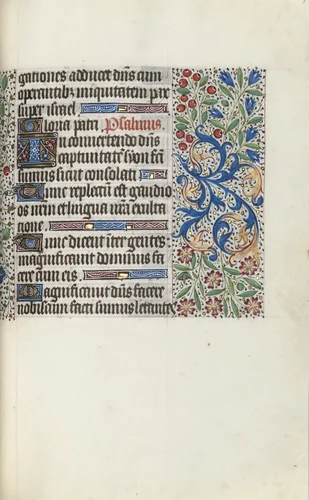 gationes adducet dns cum
operantibz iniquitatem pax
super israel.
Gloria patri Psalmus.
In convertendo dns
captivitatē syon fcti
sumus sicut consolati
Tunc repletum est gaudio
os nrm et lingua nrā exulta
tione.
Tunc dicent inter gentes
magnificavit dominus fa
cere cum eis.
Magnificavit dns facere
nobiscum facti sumus letantes